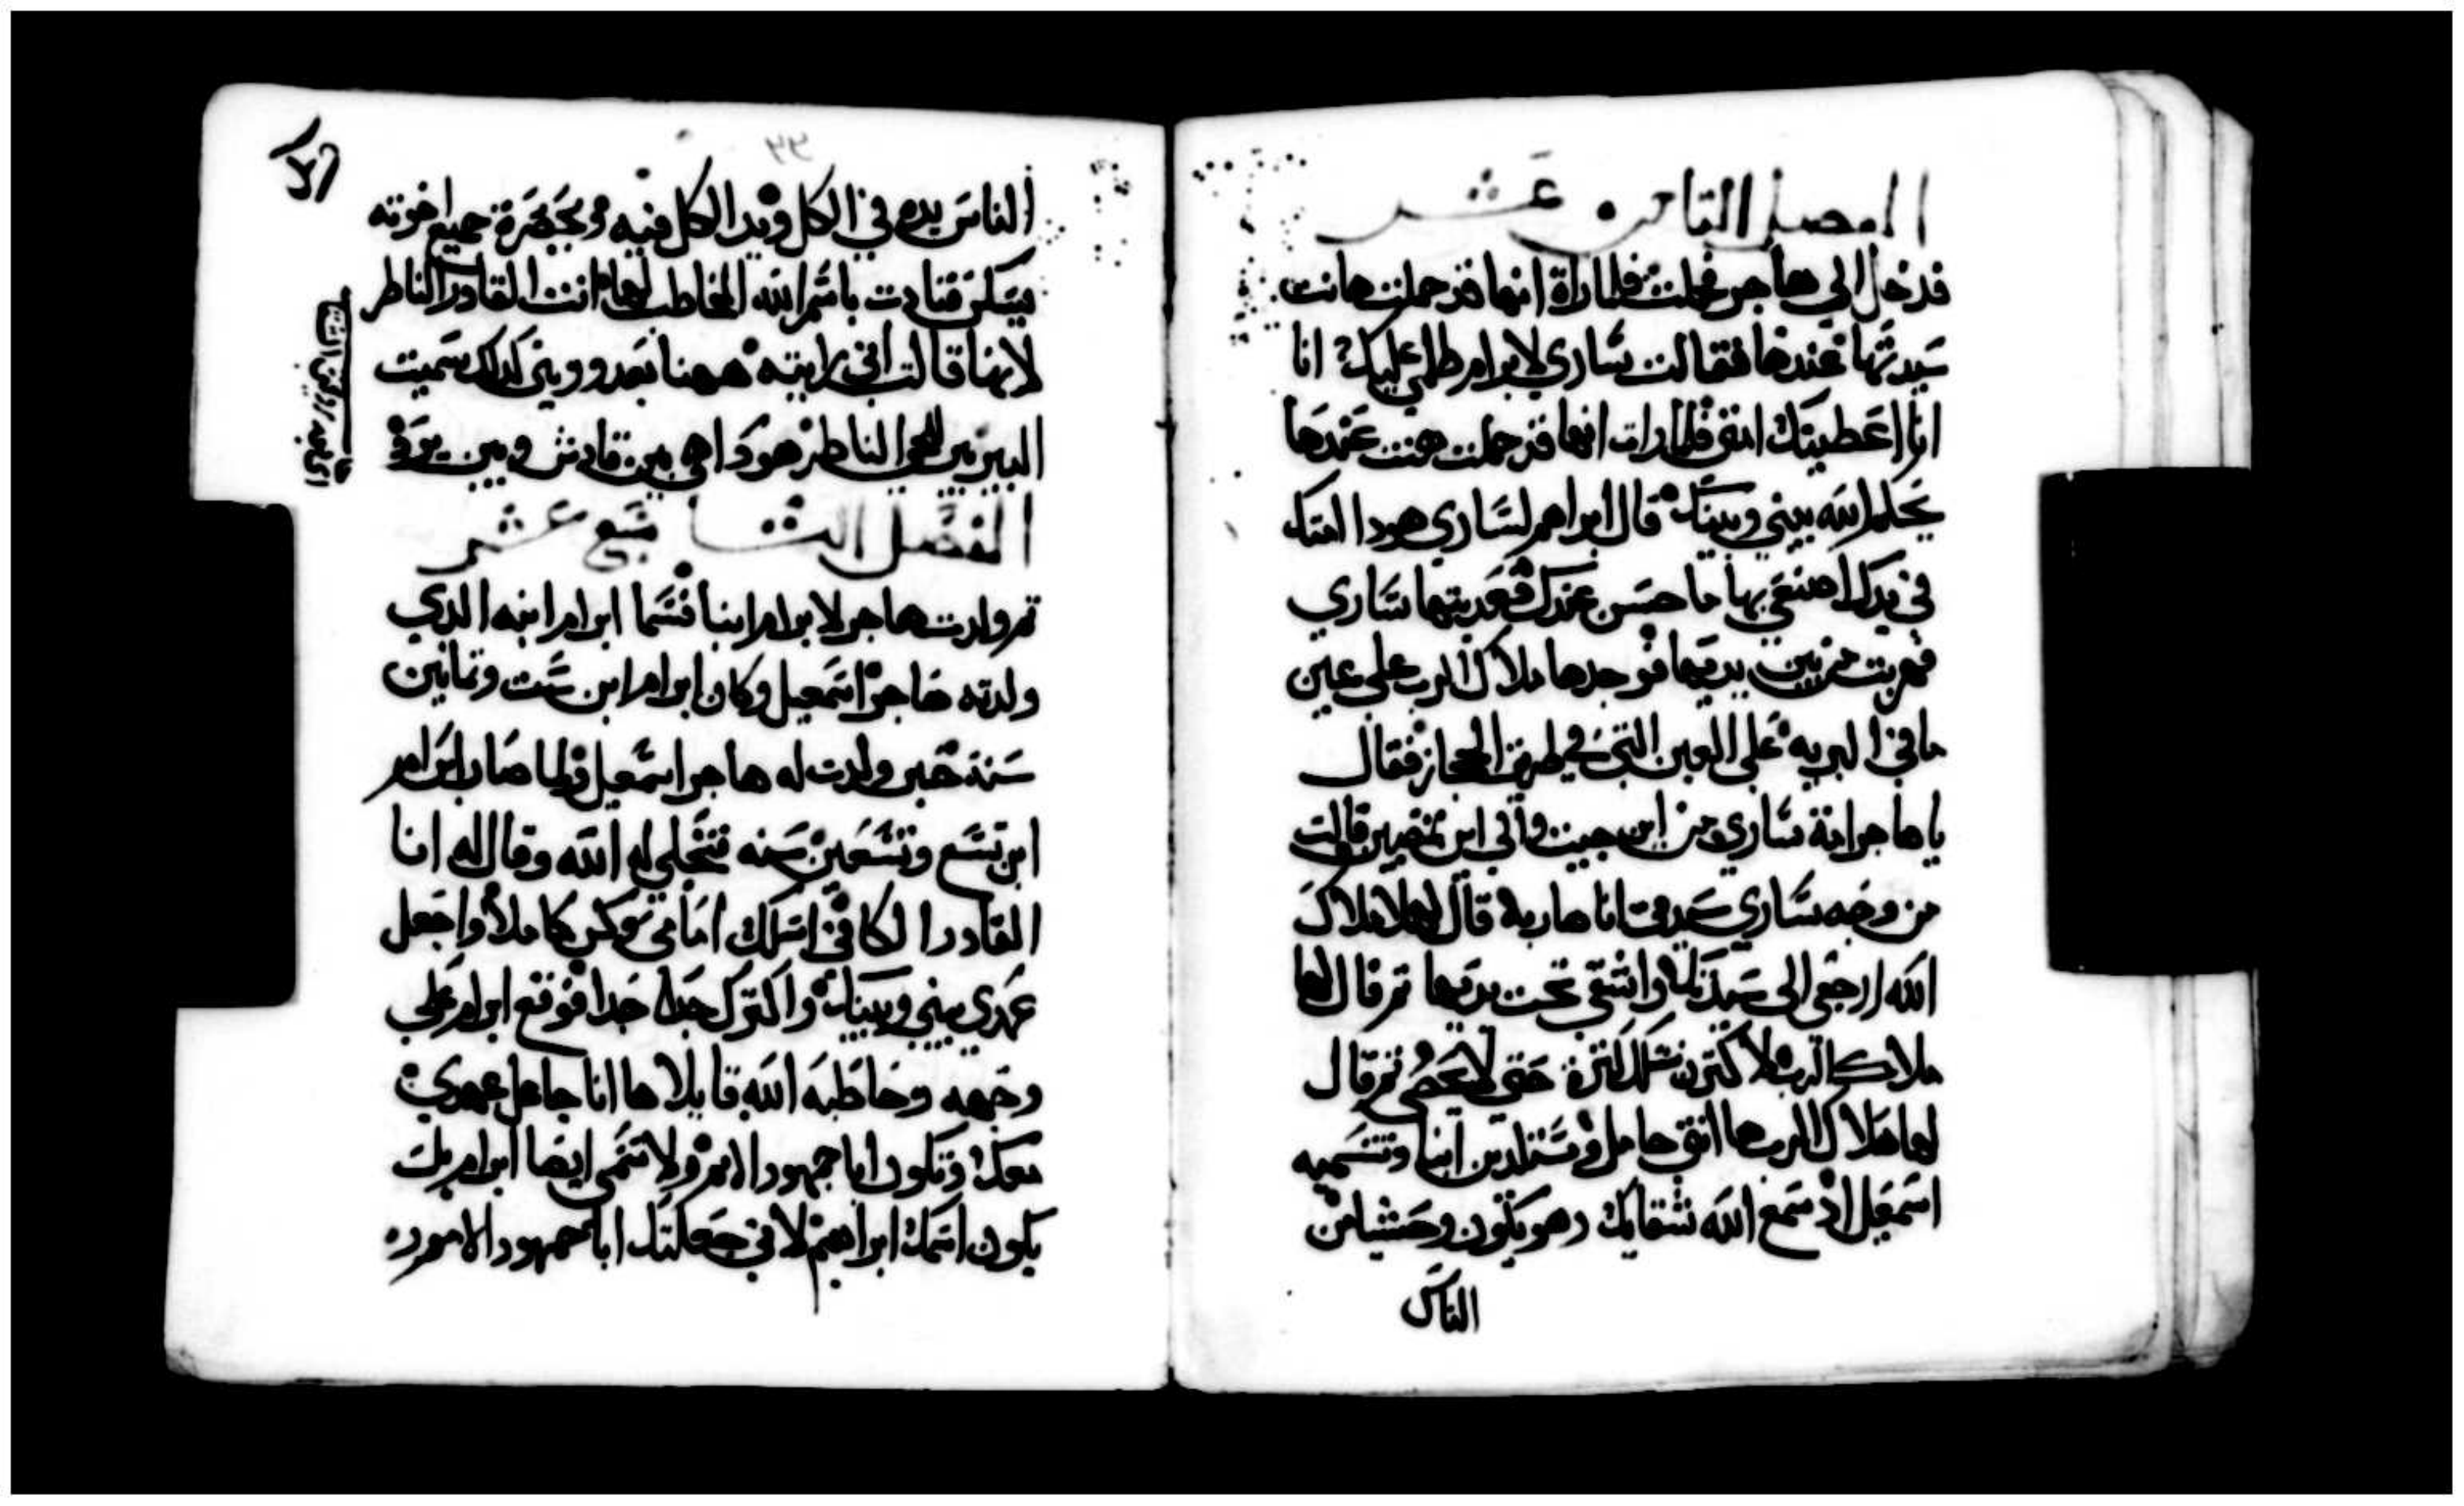 الفصل الثامن عشر
فدخل الي هاجر فحملت فلما راة انها قد حملت هانت
سيدتها عندها فقالت ساري لابرام ظلمي عليك انا
انا اعطيتك امتي فلما رات انها قد حملت هنت عندها
يحكم الله بيني وبينك قال ابراهم لساري هودا امتك
في يدك اصنعي بها ما حسن عندك فعدبتها ساري
فهربت من بين يديها فوجدها ملاك الرب علي عين
ما في البريه علي العين التي في طريق الحجاز فقال
يا هاجر امة ساري من اين جيت والي اين تمضين قالت
من وجه ساري سيدتي انا هاربه قال لها ملاك
الله ارجعي الى سيدتك واشقي تحت يديها تم قال لها
ملاك الرب لاكترن نسلك كترة حتي لا يحصي تم قال
لها ملاك الرب ها انتي حامل وستلدين ابنا وتسميه
اسمعيل اد سمع الله شقايك وهو يكون وحشيا من
الناس
الناس يده في الكل ويد الكل فيه وبحضرة جميع اخوته
يسكن فنادت باسم الله المخاطب لها انت القادر الناظر
لانها قالت اني رايته ههنا بعد رويتي كدلك سميت
البير بير الحي الناظر هودا هي بين قادش وبين برد
الفصل التاسع عشر
تم ولدت هاجر لابرام ابنا فسما ابرام ابنه الدي
ولدته هاجر اسمعيل وكان ابرام ابن ست وتمانين
سنة حين ولدت له هاجر اسمعيل ولما صار ابرام
ابن تسع وتسعين سنه فتجلي له الله وقال له انا
القادر الكافي اسلك امامي وكن كاملا واجعل
عهدي بيني وبينك واكترك جدا جدا فوقع ابرام علي
وجهه وخاطبه الله قايلا ها انا جاعل عهدي
معك وتكون ابا جمهور الامم ولا تسمي ايضا ابرام بل
يكون اسمك ابراهيم لاني جعلتك ابا جمهور الامور